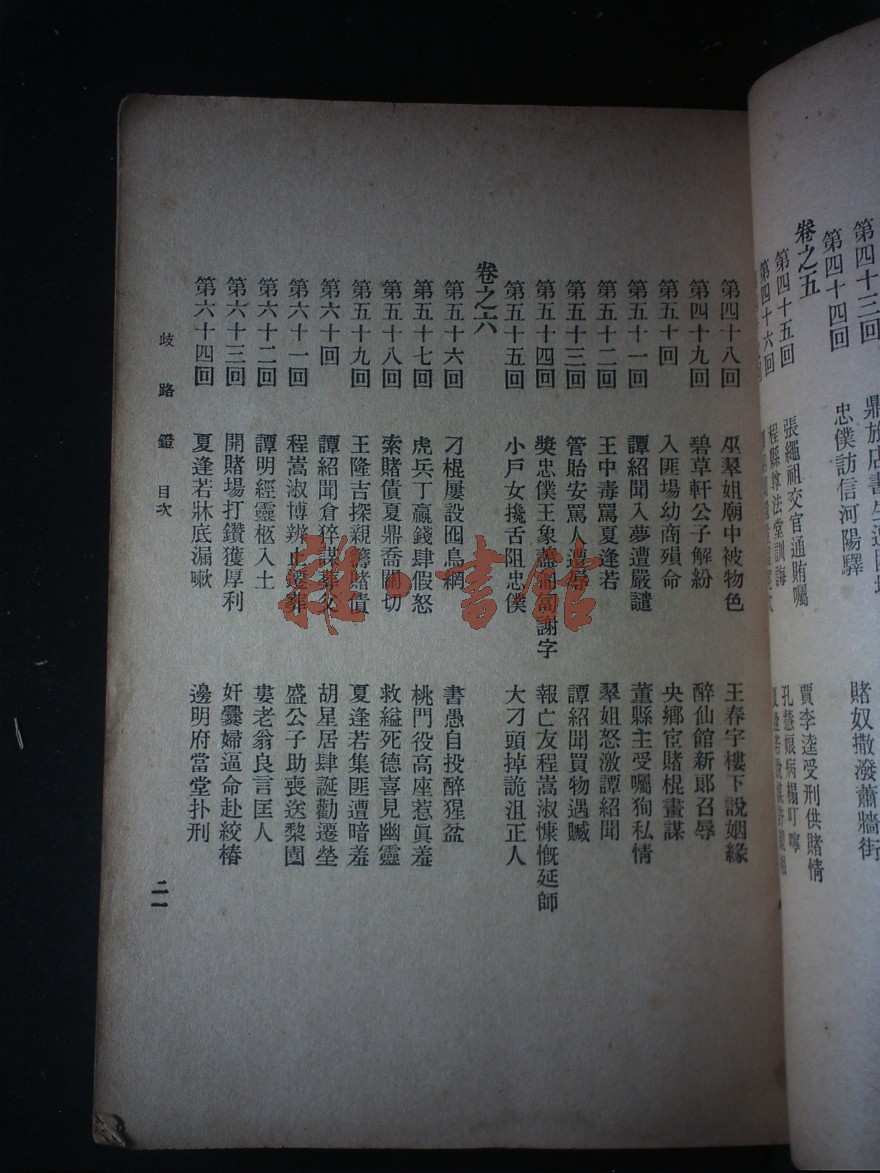 第四十三回
第四十四回 忠僕訪信河陽驛 賭奴撒潑蕭牆街
卷之五
第四十五回 張繩祖交官通賄囑 賈李逵受刑供賭情
第四十六回 程縣尊法堂訓誨 孔慧娘病榻叮嚀
第四十八回 巫翠姐廟中被物色 王春宇樓下說姻緣
第四十九回 碧草軒公子解紛 醉仙館新郎召辱
第五十回 入匪場幼商殞命 央鄉宦賭棍畫謀
第五十一回 譚紹聞入夢遭嚴譴 董縣主受囑狥私情
第五十二回 王中毒罵夏逢若 翠姐怒激譚紹聞
第五十三回 管貽安罵人遭辱 譚紹聞買物遇贓
第五十四回 奬忠僕王象藎匍匐謝字 報亡友程嵩淑慷慨延師
第五十五回 小戶女攙舌阻忠僕 大刁頭掉詭沮正人
卷之六
第五十六回 刁棍屢設囮鳥網 書愚自投醉猩盆
第五十七回 虎兵丁贏錢肆假怒 桃門役高座惹眞羞
第五十八回 索賭債夏鼎喬關切 救縊死德喜見幽靈
第五十九回 王隆吉探親籌賭債 夏逢若集匪遭暗羞
第六十回 譚紹聞倉猝謀葬父 胡星居肆誕勸遷塋
第六十一回 程嵩淑博辨止遷葬 盛公子助喪送梨園
第六十二回 譚明經靈柩入土 婁老翁良言匡人
第六十三回 開賭場打鑽獲厚利 奸爨婦逼命赴絞樁
第六十四回 夏逢若牀底漏嗽 邊明府當堂扑刑
歧路鐙 目次
二一
雜·書館